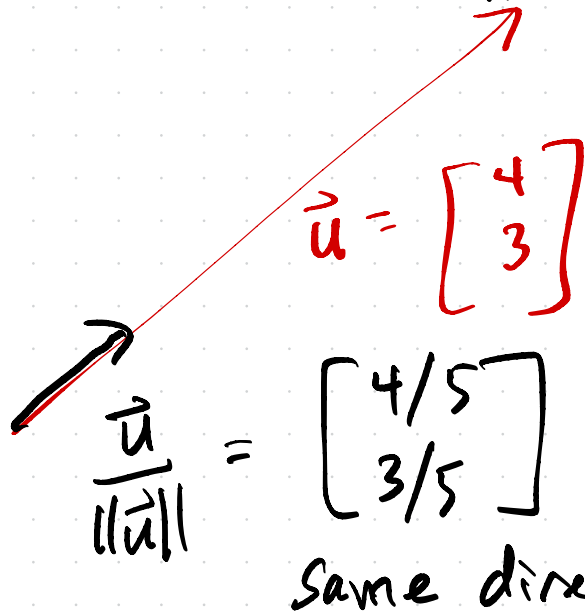 u⃗ = [4 3]
u⃗/||u⃗|| = [4/5 3/5]
same dire